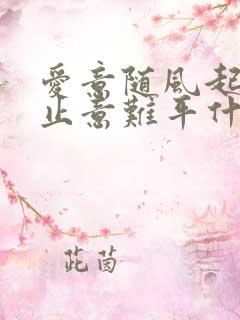 愛意随風起
止意難平什
茈茵